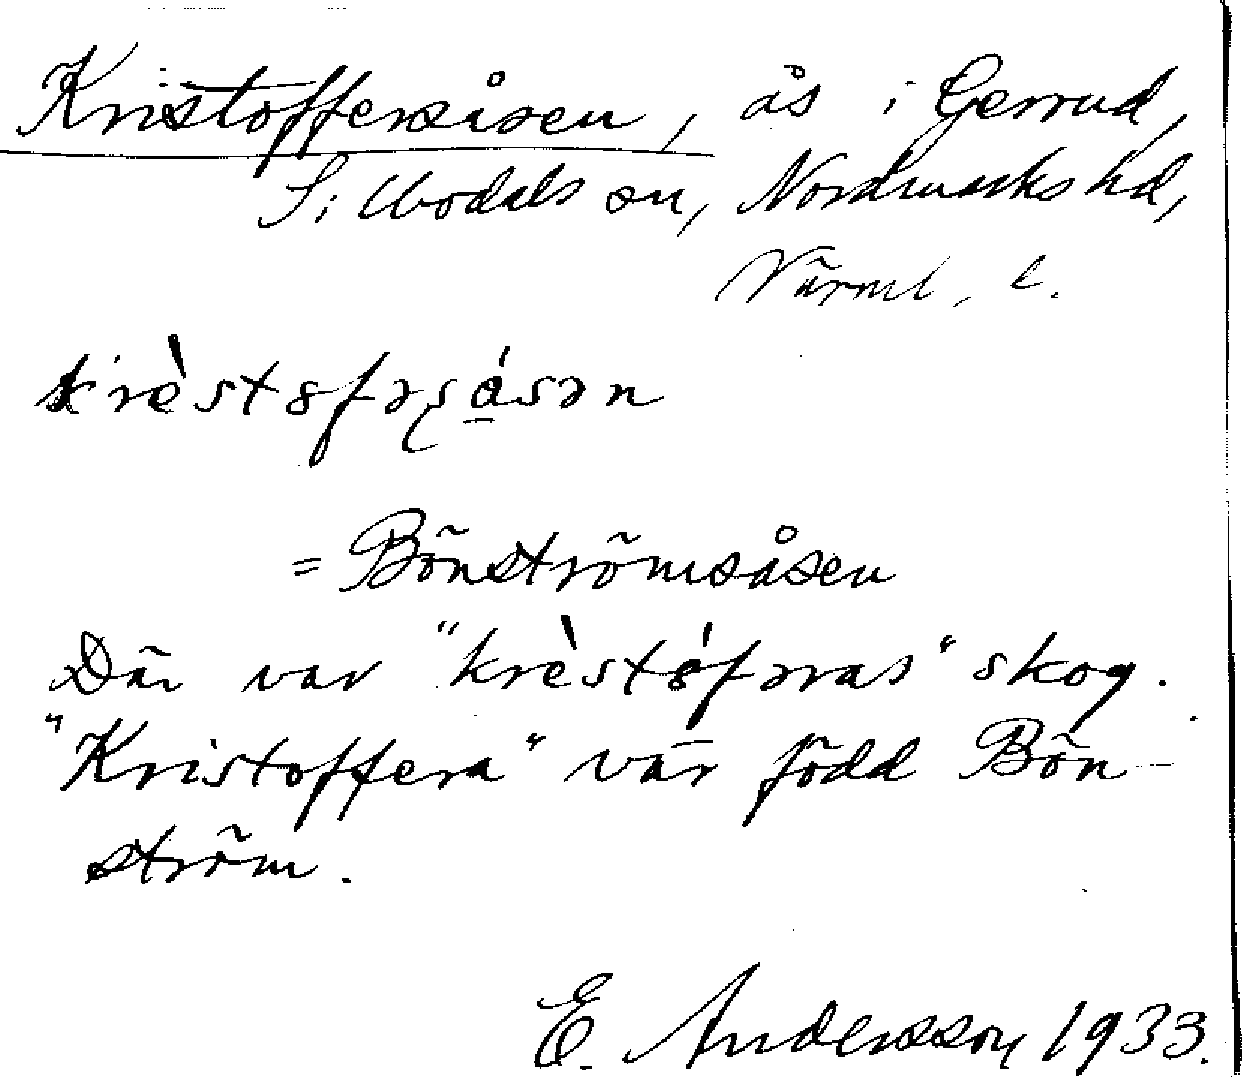 Kristoffersåsen, ås i Gerrud,
Sillbodals sn, Nordmarks hd,
Värml. l.
krèstofəʂǻsən
= Bönströmsåsen
Där var "krèstófəras" skog.
"Kristoffera" var född Bön-
ström.
E. Andersson 1933.